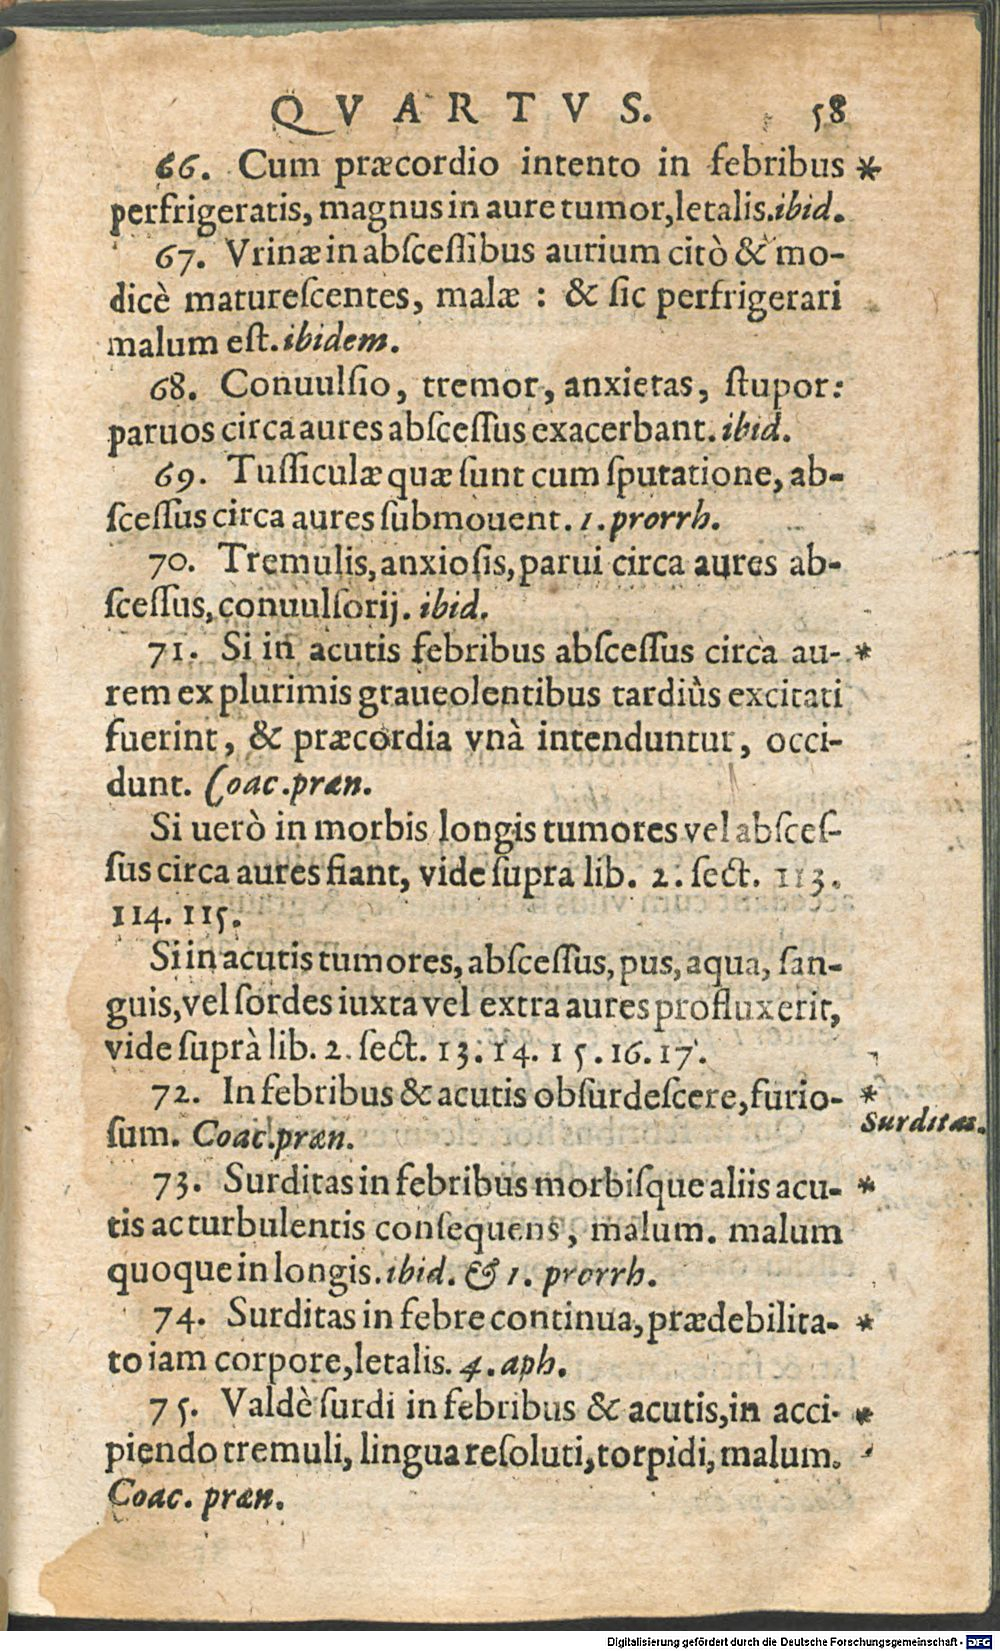 QVARTVS. 58
66. Cum præcordio intento in febribus *
perfrigeratis, magnus in aure tumor, letalis. ibid.
67. Vrinæ in abſceſſibus aurium citò & mo-
dicè matureſcentes, malæ : & ſic perfrigerari
malum eſt. ibidem.
68. Conuulſio, tremor, anxietas, ſtupor:
paruos circa aures abſceſſus exacerbant. ibid.
69. Tuſſiculæ quæ ſunt cum ſputatione, ab-
ſceſſus circa aures ſubmouent. 1. prorrh.
70. Tremulis, anxioſis, parui circa aures ab-
ſceſſus, conuulſorij. ibid.
71. Si in acutis febribus abſceſſus circa au- *
rem ex plurimis graueolentibus tardiùs excitati
fuerint, & præcordia vnà intenduntur, occi-
dunt. Coac. præn.
Si uerò in morbis longis tumores vel abſceſ-
ſus circa aures fiant, vide ſupra lib. 2. ſect. 113.
114. 115.
Si in acutis tumores, abſceſſus, pus, aqua, ſan-
guis, vel ſordes iuxta vel extra aures profluxerit,
vide ſuprà lib. 2. ſect. 13. 14. 15. 16. 17.
72. In febribus & acutis obſurdeſcere, furio- *
Surditas.
ſum. Coac. præn.
73. Surditas in febribus morbiſque aliis acu- *
tis ac turbulentis conſequens, malum. malum
quoque in longis. ibid. & 1. prorrh.
74. Surditas in febre continua, prædebilita- *
to iam corpore, letalis. 4. aph.
75. Valdè ſurdi in febribus & acutis, in acci- *
piendo tremuli, lingua reſoluti, torpidi, malum.
Coac. præn.
Digitalisierung gefördert durch die Deutsche Forschungsgemeinschaft - DFG